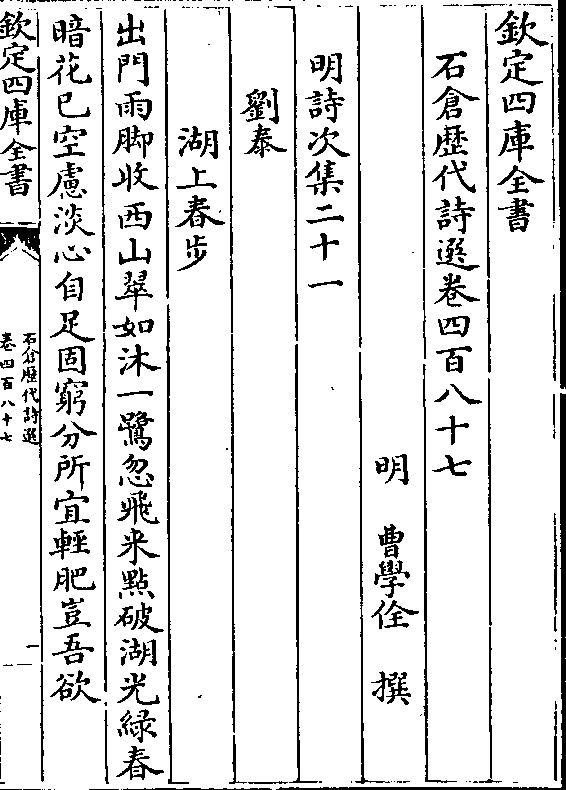 欽定四庫全書
石倉歷代詩選卷四百八十七
明 曹學佺 撰
明詩次集二十一
劉泰
湖上春步
出門雨脚收西山翠如沐一鷺忽飛来點破湖光緑春
暗花已空慮淡心自足固窮分所宜輕肥豈吾欲
欽定四庫全書
石倉歷代詩選
卷四百八十七
一